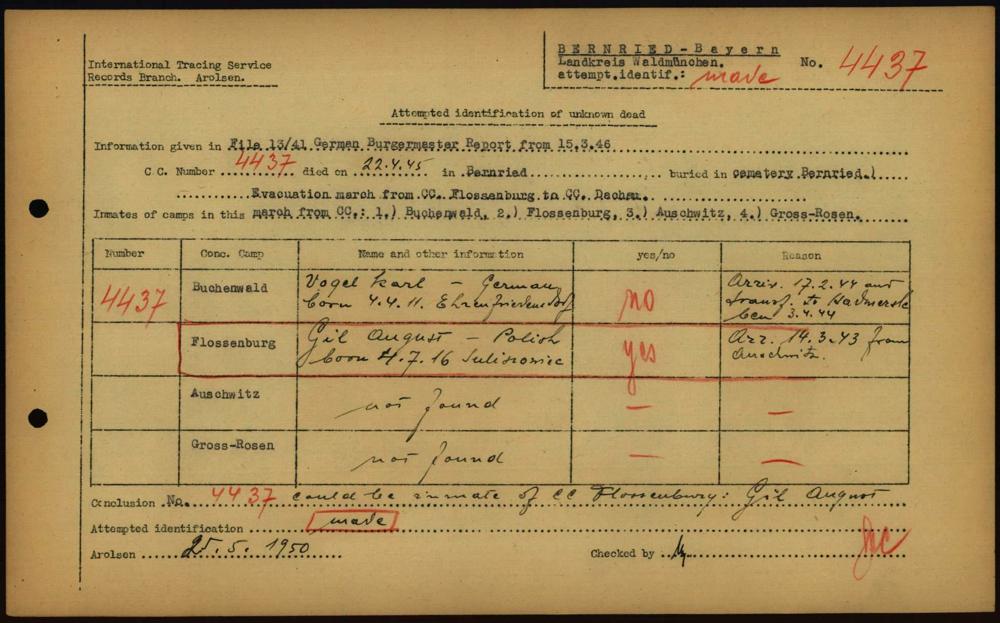 International Tracing Service
Records Branch. Arolsen.
BERNRIED-Bayern
Landkreis Waldmünchen.
attempt.identif.: made
No. 4437
Attempted identification of unknown dead
Information given in File 13/41 German Burgermaster Report from 15.3.46
C.C. Number 4437 died on 22.4.45 in Bernried buried in cemetery Bernried.)
Evacuation march from CC. Flossenburg to CC. Dachau.
Inmates of camps in this march from CC.: 1.) Buchenwald, 2.) Flossenburg, 3.) Auschwitz, 4.) Gross-Rosen.
Number Conc. Camp Name and other information yes/no Reason
4437 Buchenwald
Vogel Karl – German
born 4.4.11. Ehrenfriedersdorf
no
Arriv. 17.2.44 and
transf. to
3.4.44
Flossenburg
Gil August – Polish
born 4.7.16
yes
Arr. 14.3.43 from
Auschwitz.
Auschwitz not found — —
Gross-Rosen not found — —
Conclusion No. 4437 could be inmate of CC Flossenburg: Gil August
Attempted identification made
Arolsen 25.5.1950 Checked by